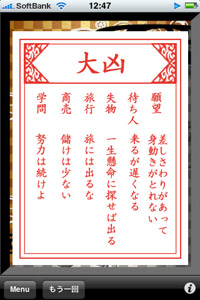 SoftBank 12:47
大凶
願望 差しさわりがあって
身動きがとれない
待ち人 来るが遅くなる
失物 一生懸命に探せば出る
旅行 旅には出るな
商売 儲けは少ない
学問 努力は続けよ
Menu もう一回